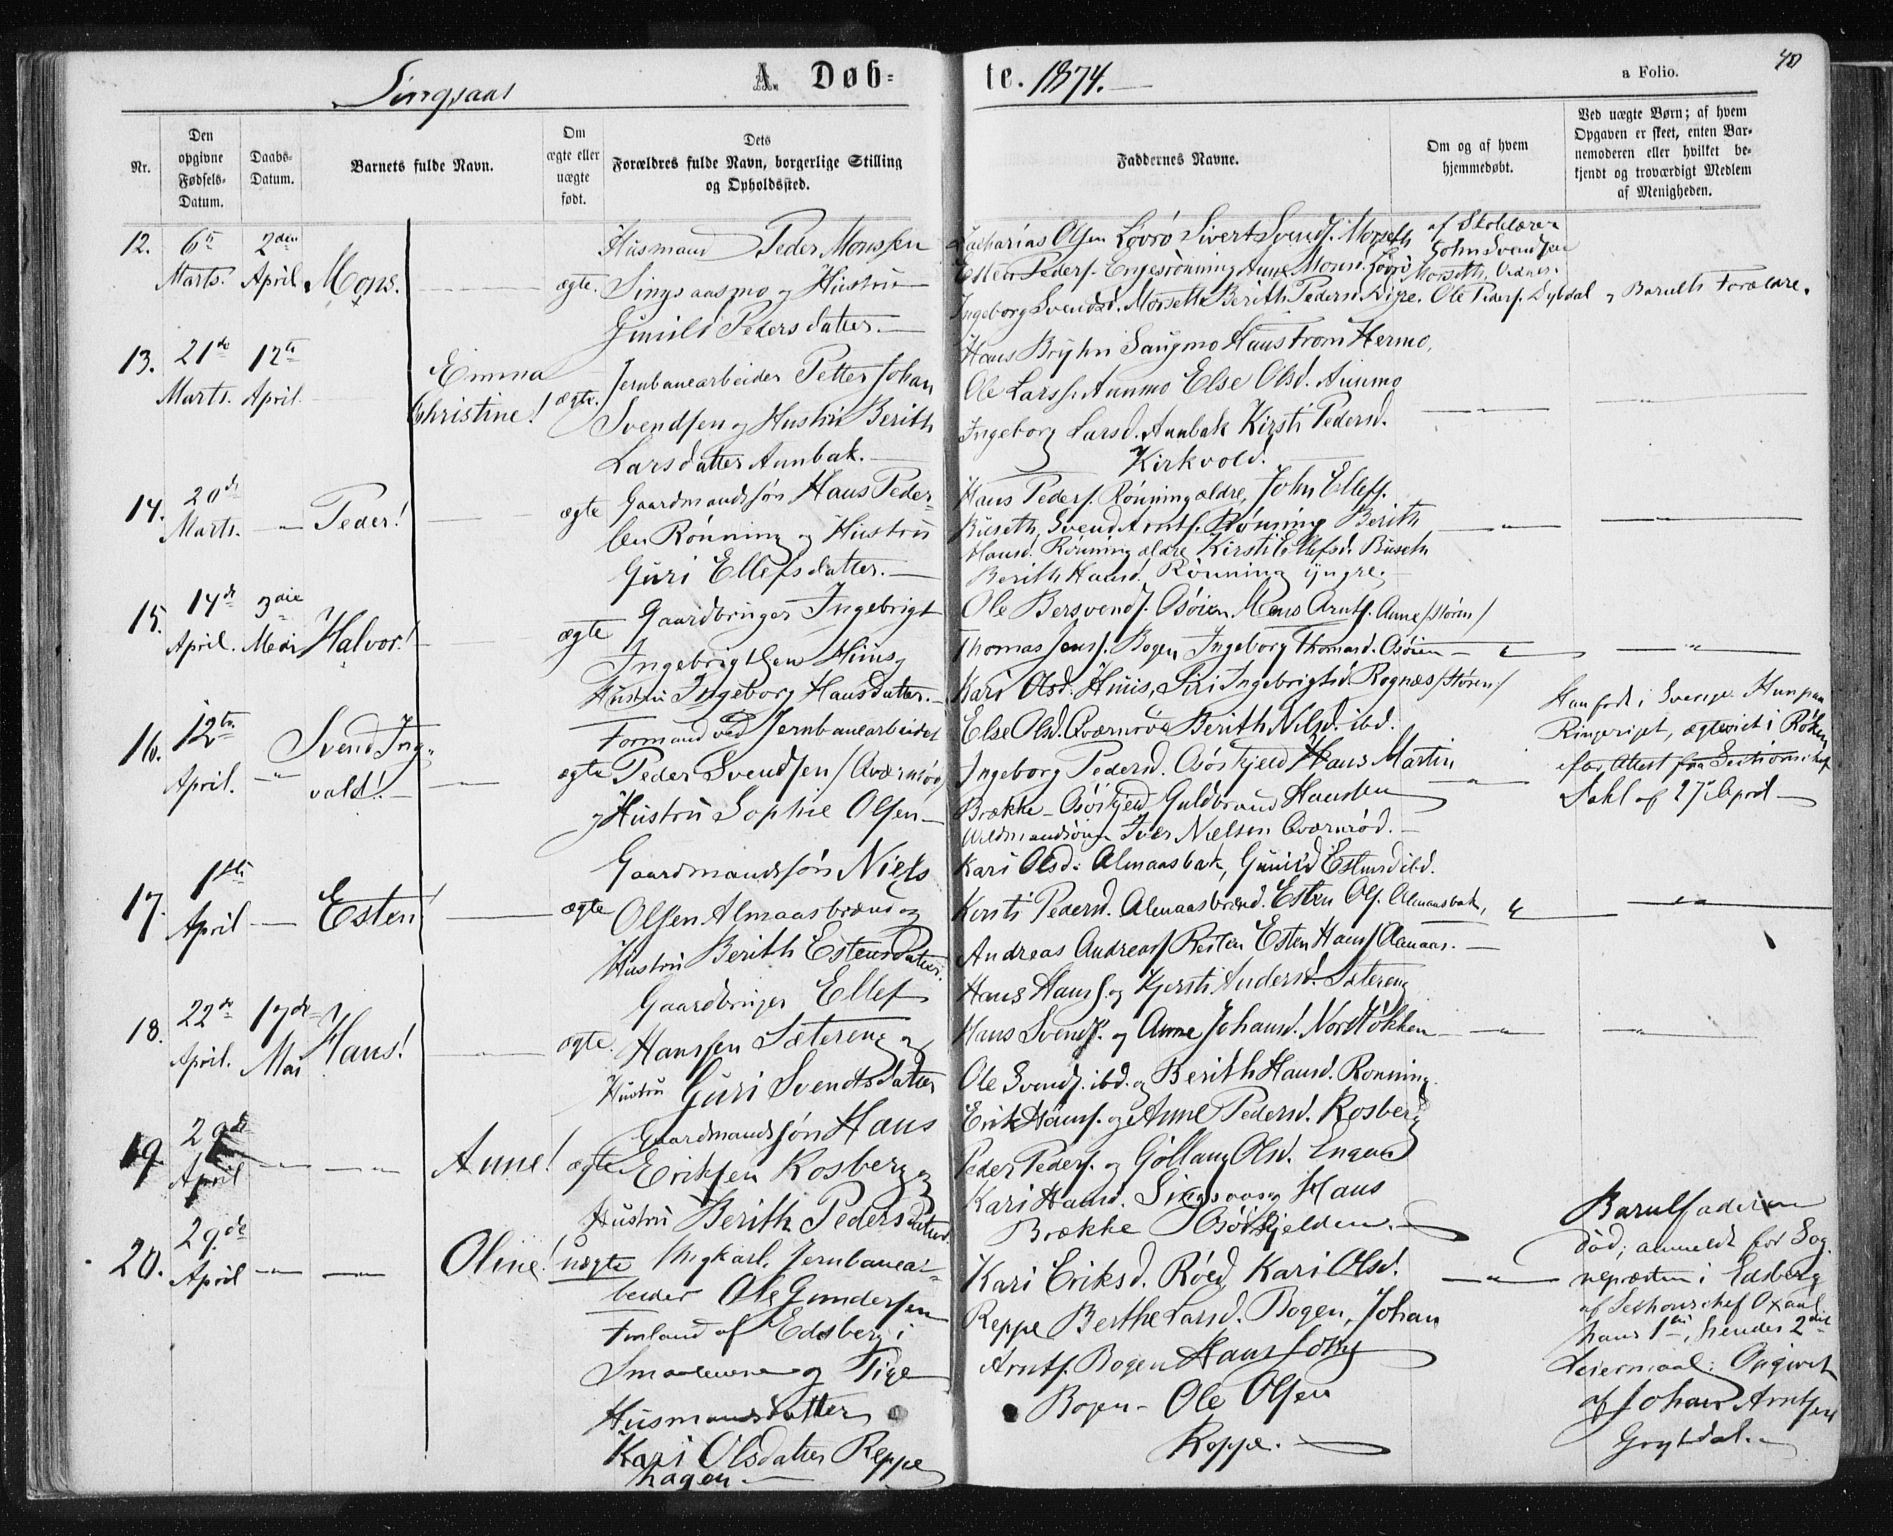 Singsaas
A. Døb-
te. 1874.
a Folio.
40
Nr.
Den opgivne Fødsels-Datum.
Daabs-Datum.
Barnets fulde Navn.
Om ægte eller uægte født.
Dets Forældres fulde Navn, borgerlige Stilling og Opholdssted.
Faddernes Navne.
Om og af hvem hjemmedøbt.
Ved uægte Børn; af hvem Opgaven er skeet, enten Barnemoderen eller hvilket bekjendt og troværdigt Medlem af Menigheden.
12. 6te Marts. 2den April. Mons. ægte.
Husmand Peder Monssen
Singsaasmo og Hustru
Gunild Pedersdatter.
Zacharias Olsen Løvrø Sivert Svends. Morseth
Esten Peders. Engesrønning Anne Monsd. Løvrø
Ingeborg Svendsd. Morseth Berith Pedersd.
af Skolelærer
John Svendsen
Morseth, Vidner:
Ole Peders. Dybdal og Barnets Forældre.
13. 21de Marts. 12te April. Emma
Christine! ægte.
Jernbanearbeider Petter Johan
Svendsen og Hustru Berith
Larsdatter Aunbak.
Hans Bryhn Saugmo Haustrom Hermo,
Ole Larss. Aunmo Else Olsd. Aunmo
Ingeborg Larsd. Aunbak Kirsti Pedersd.
Kirkvold.
14. 20de Marts. Peder! ægte
Gaardmandssøn Hans Peder-
sen Rønning og Hustru
Guri Ellefsdatter.
Hans Peders. Rønning ældre, John Ellefs.
Buseth, Svend Arnts. Rønning Berith
Hansd. Rønning ældre Kirsti Ellefsd. Buseth
Berith Hansd. Rønning yngre.
15. 14de April. 3die Mai Halvor! ægte
Gaardbruger Ingebrigt
Ingebrigtsen Huus og
Hustru Ingeborg Hansdatter.
Ole Bersvends. Osøien, Mons Arnts. Aune /Støren/
Thomas Jens. Bogen Ingeborg Thomasd. Osøien
Kari Olsd. Huus, Siri Ingebrigtsd Rognæs /Støren/
16. 12te April. Svend Ing-
vald! ægte
Formand ved Jernbanearbeidet
Peder Svendsen /Qværnrød/
og Hustru Sophie Olsen
Else Olsd. Qværnrød Berith Nilsd. ibd.
Ingeborg Pedersd. Osøskjeld Hans Martin
Brække Osøskjeld Guldbrand Hansen
Iver Nielsen Qværnrød.
Han født i Sverige Hun paa
Ringeriget, ægteviet i Røken
efter Attest fra Sectionschef
Dahl af 27de April
17. 1ste April Esten! ægte
Gaardmandssøn Niels
Olsen Almaasbrænd og
Hustru Berith Estensdatter.
Kari Olsd. Almaasbak, Gunild Estensd ibd.
Kirsti Pedersd. Almaasbrænd. Esten Ols. Almaasbak,
Andreas Andreass. Resten Esten Hans. Almaas.
18. 22de April. 17de Mai Hans! ægte.
Gaardbruger Ellef
Hanssen Sætereng og
Hustru Guri Svendsdatter
Hans Hans. og Kjersti Andersd. Sætereng
Hans Svends. og Anne Johansd. Nordløkken
Ole Svends. ibd. og Berith Hansd. Rønning.
19 29de April Anne! ægte
Gaardmandssøn Hans
Eriksen Rosberg og
Hustru Berith Pedersdatter
Erik Hans. og Anne Pedersd. Rosberg
Peder Peders. og Gollaug Olsd. Engan
Kari Hansd. Singsaas og Hans
Brække Osøskjelden.
20. 29de April Oline! uægte
Ungkarl. Jernbanear-
beider Ole Gundersen
Finland af Edsberg i
Smaalenene og Pige
Husmandsdatter
Kari Olsdatter Reppe
hagen.
Kari Eriksd. Røed, Kari Olsd.
Reppe Berthe Larsd. Bogen, Johan
Arnts. Bogen Hans
Bogen Ole Olsen
Reppe.
Barnefaderen
død; anmeldt for Sog-
nepræsten i Edsberg
af Sectionschef Oxaal
hans 1ste, hendes 2det
Leiermaal: Opgivet
af Johan Arntsen
Grytdal.